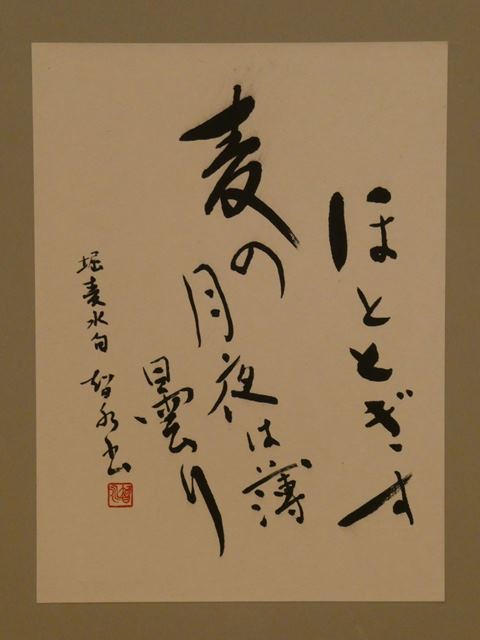 ほととぎす
麦の月夜は薄
曇り
堀麦水句 智永書